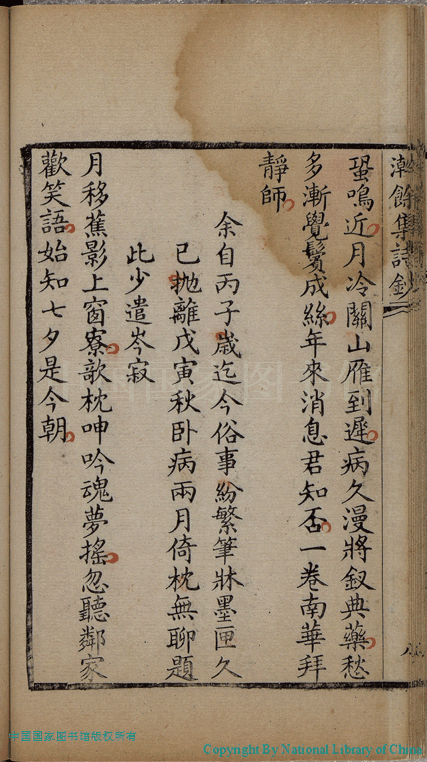 瀚餘集詩鈔
蛩鳴近月冷關山雁到遲病久漫將釵典藥愁
多漸覺鬢成絲年來消息君知否一卷南華拜
靜師
余自丙子歲迄今俗事紛繁筆牀墨匣久
已拋離戊寅秋卧病兩月倚枕無聊題
此少遣岑寂
月移蕉影上窗寮欹枕呻吟魂夢搖忽聽鄰家
歡笑語始知七夕是今朝
中国国家图书馆版权所有
Copyright By National Library of China